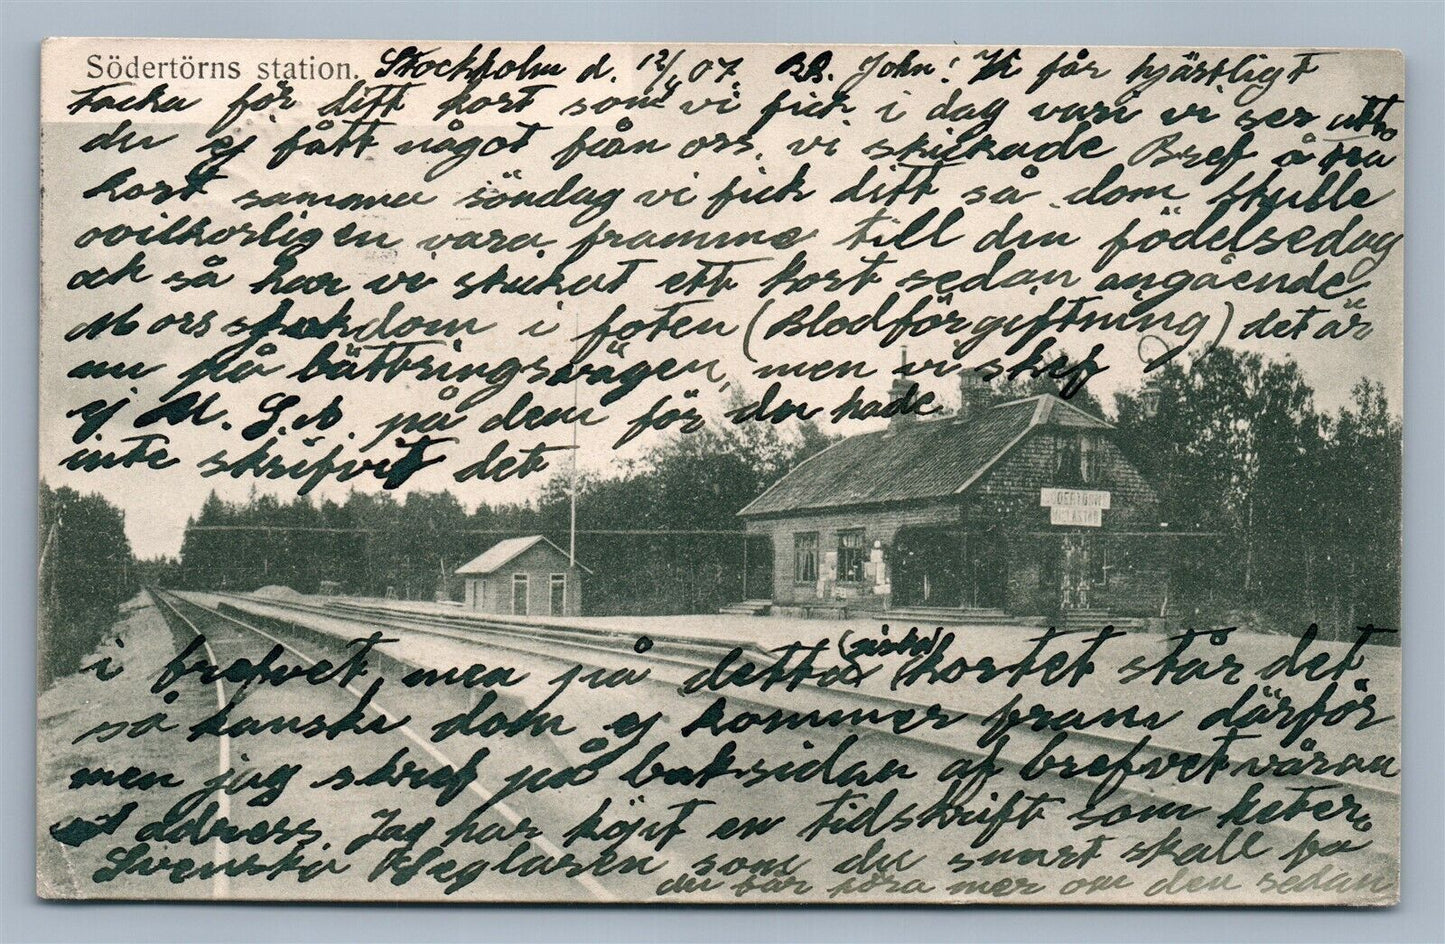 Södertörns station.
Stockholm d. 12/11 07. Br. John! Vi får hjärtligt
tacka för ditt kort som vi fick i dag vari vi ser att
du ej fått något från oss, vi skickade Bref å två
kort samma söndag vi fick ditt så dom skulle
ovilkorligen vara framme till din födelsedag
och så har vi skickat ett kort sedan angående
Mors sjukdom i foten (Blodförgiftning) det är
nu på bättringsvägen, men vi skref
ej M. S. A. på dem för du hade
inte skrifvit det
SÖDERTÖRNS
i brefvet men på detta (sista) kortet står det
så kanske dom ej kommer fram därför
men jag skref på baksidan af brefvet våran
adress. Jag har köpt en tidskrift som heter
Svenska Häglaren som du snart skall få
du bär höra mer om den sedan